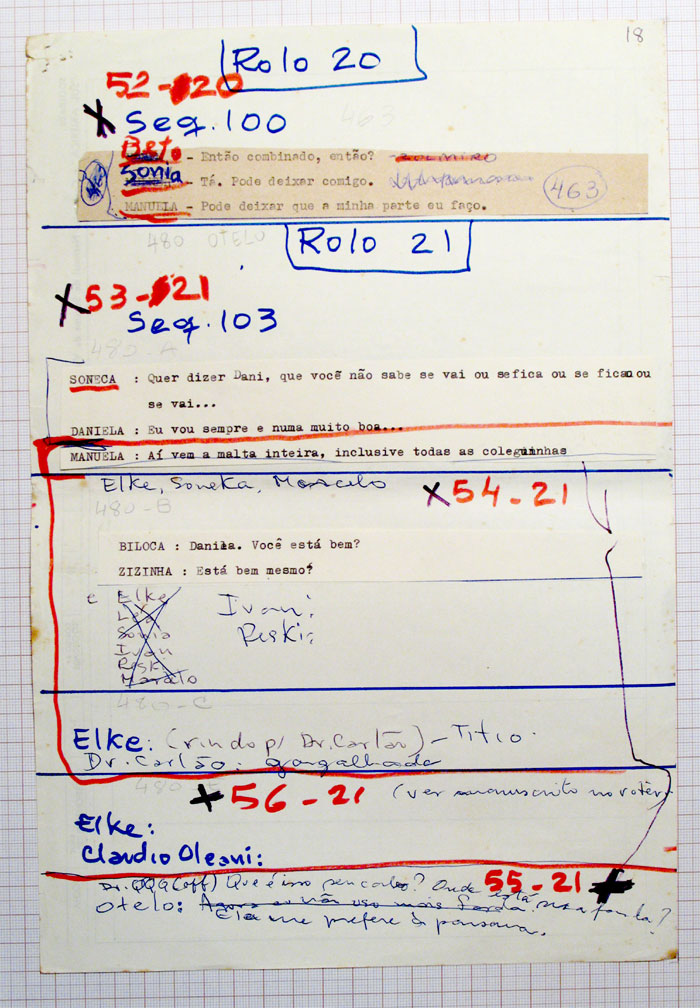 18
Rolo 20
52-20
X Seq. 100
463
Beto - Então combinado, então?
Sonia - Tá. Pode deixar comigo. 463
MANUELA - Pode deixar que a minha parte eu faço.
480 OTELO
Rolo 21
X 53-21
Seq. 103
480-A
SONECA : Quer dizer Dani, que você não sabe se vai ou sefica ou se fica ou
se vai...
DANIELA : Eu vou sempre e numa muito boa...
MANUELA : Aí vem a malta inteira, inclusive todas as coleguinhas
Elke, Soneka, Marcelo X 54-21
480-B
BILOCA : Danila. Você está bem?
ZIZINHA : Está bem mesmo?
e Elke
Léa
Sonia
Ivan
Reski
Ivan:
Reski:
480-C
Elke: (rindo p/ Dr. Carlão) - Titio.
Dr. Carlão: gargalhada
X 56-21 (ver manuscrito no
Elke:
Claudio Oleani:
Dr. (off) Que é isso seu Onde está sua farda? 55-21 X
Otelo: Agora eu não uso mais farda.
Ela me prefere à paisana.